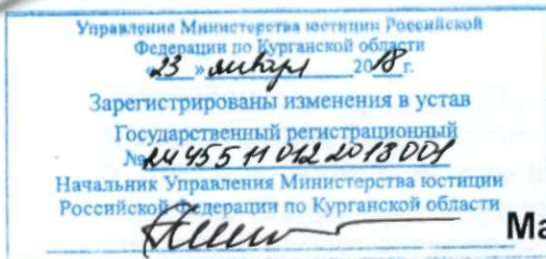 Управление Министерства юстиции Российской
Федерации по Курганской области
«23» января 2018г.
Зарегистрированы изменения в устав
Государственный регистрационный
№ RU455110122018001
Начальник Управления Министерства юстиции
Российской Федерации по Курганской области
Ма